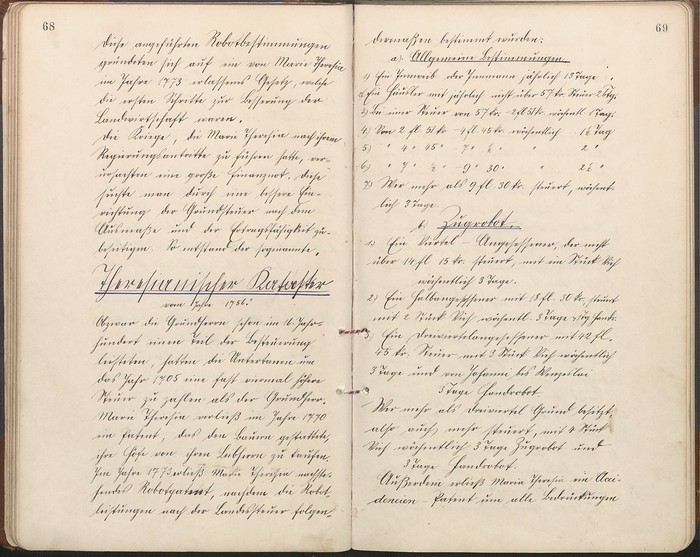 68
Diese angeführten Robotbestimmungen
gründeten sich auf ein von Maria Theresia
im Jahre 1773 erlassenes Gesetz, welche
die ersten Schritte zur Besserung der
Landwirtschaft waren.
Die Kriege, die Maria Theresia nach ihrem
Regierungsantritte zu führen hatte, ver-
ursachten eine große Finanznot. Diese
suchte man durch eine bessere Ein-
richtung der Grundsteuer nach dem
Ausmaße und der Ertragsfähigkeit zu
beseitigen. So entstand der sogenannte,
Theresianischer Kataster
vom Jahre 1756.
Obzwar die Grundherrn schon im 16. Jahr-
hundert einen Teil der Besteuerung
leisteten, hatten die Untertanen um
das Jahr 1705 eine fast viermal höhere
Steuer zu zahlen als der Grundherr.
Maria Theresia erließ im Jahre 1770
ein Patent, das den Bauern gestattete,
ihre Höfe von ihren Lehnherrn zu kaufen.
Im Jahre 1773 erließ Maria Theresia nachste-
hendes Robotpatent, nachdem die Robot-
leistungen nach der Landessteuer folgen-
69
dermaßen bestimmt wurden:
a) Allgemeine Bestimmungen.
1) Ein Innweib oder Innmann jährlich 13 Tage
2) Ein Häusler mit jährlich nicht über 57 kr. Steuer 26 Tg.
3) Bei einer Steuer von 57 kr. - 2 fl 51 kr. wöchentl. 1 Tag.
4) Von 2 fl. 51 kr - 4 fl. 45 kr. wöchentlich 1½ Tag
5) " 4 " 45 " - 7 " " " 2 "
6) " 7 " - 9 " 30 " " 2½ "
7) Wer mehr als 9 fl. 30 kr. steuert, wöchent-
lich 3 Tage.
b) Zugrobot.
1) Ein Viertel-Angesessener, der nicht
über 14 fl 15 kr. steuert, mit ein Stück Vieh
wöchentlich 3 Tage.
2) Ein Halbangesessener mit 18 fl. 30 kr. steuert
mit 2 Stück Vieh wöchentl. 3 Tage
3) Ein Dreiviertelangesessener mit 42 fl.
45 kr. Steuer mit 3 Stück Vieh wöchentlich
3 Tage und von Johanni bis Wenzeslai
3 Tage Handrobot.
Wer mehr als dreiviertel Grund besitzt
also auch mehr steuert, mit 4 Stück
Vieh wöchentlich 3 Tage Zugrobot und
3 Tage Handrobot.
Außerdem erließ Maria Theresia ein Acci-
dencien-Patent um alle Bedrückungen